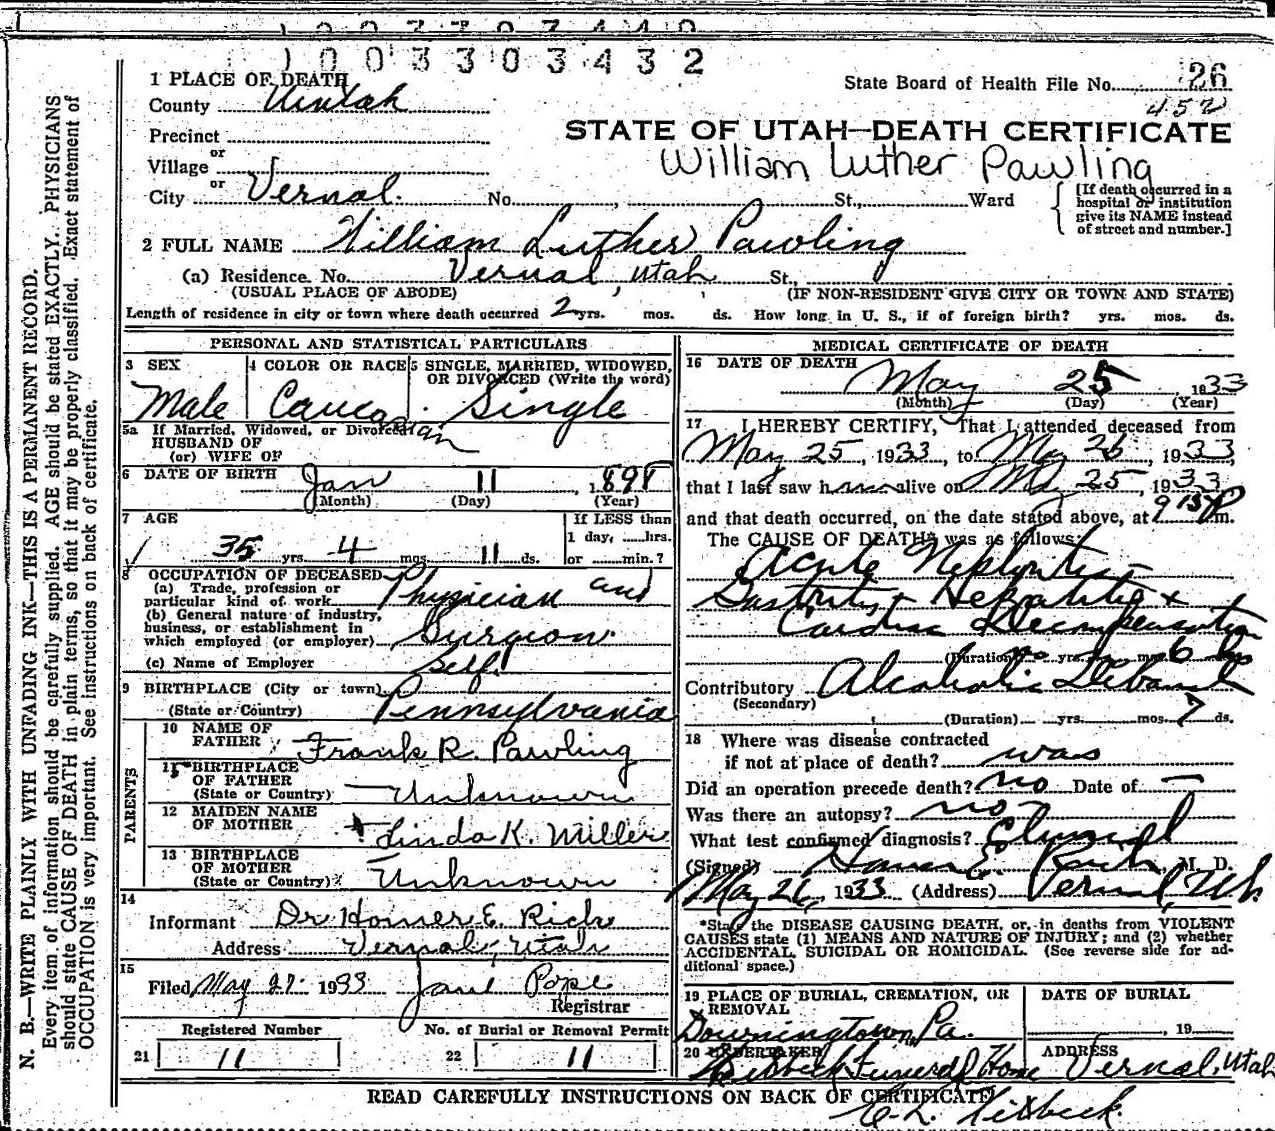 1003303432
1 PLACE OF DEATH
State Board of Health File No. 26
County Uintah
452
Precinct
STATE OF UTAH—DEATH CERTIFICATE
or
Village
William Luther Pawling
or
City Vernal. No. , St., Ward
[If death occurred in a
hospital or institution
give its NAME instead
of street and number.]
2 FULL NAME William Luther Pawling
(a) Residence. No. Vernal, Utah St.,
(USUAL PLACE OF ABODE) (IF NON-RESIDENT GIVE CITY OR TOWN AND STATE)
Length of residence in city or town where death occurred 2 yrs. mos. ds. How long in U. S., if of foreign birth? yrs. mos. ds.
PERSONAL AND STATISTICAL PARTICULARS
3 SEX
Male
4 COLOR OR RACE
Caucasian
5 SINGLE, MARRIED, WIDOWED,
OR DIVORCED (Write the word)
Single
5a If Married, Widowed, or Divorced
HUSBAND OF
(or) WIFE OF
6 DATE OF BIRTH Jan 11, 1898
(Month) (Day) (Year)
7 AGE
35 yrs. 4 mos. 11 ds.
If LESS than
1 day, hrs.
or min.?
8 OCCUPATION OF DECEASED
(a) Trade, profession or
particular kind of work Physician and
(b) General nature of industry,
business, or establishment in
which employed (or employer) Surgeon.
(c) Name of Employer Self
9 BIRTHPLACE (City or town)
(State or Country) Pennsylvania
PARENTS
10 NAME OF
FATHER Frank R. Pawling
11 BIRTHPLACE
OF FATHER
(State or Country) Unknown
12 MAIDEN NAME
OF MOTHER Linda K. Miller
13 BIRTHPLACE
OF MOTHER
(State or Country) Unknown
14
Informant Dr Homer E. Rich
Address Vernal, Utah
15
Filed May 27 1933 Pope
Registrar
Registered Number No. of Burial or Removal Permit
21 11 22 11
MEDICAL CERTIFICATE OF DEATH
16 DATE OF DEATH May 25 1933
(Month) (Day) (Year)
17 I HEREBY CERTIFY, That I attended deceased from
May 25, 1933, to May 26, 1933,
that I last saw h alive on May 25, 1933
and that death occurred, on the date stated above, at 9 15 P m.
The CAUSE OF DEATH was as follows:
Acute Nephritis
Gastritis + Hepatitis +
Cardiac Decompensation
(Duration) no yrs. mos. 6
Contributory Alcoholic
(Secondary)
(Duration) yrs. mos. 7 ds.
18 Where was disease contracted
if not at place of death? was
Did an operation precede death? no Date of —
Was there an autopsy? no
What test confirmed diagnosis? Clinical
(Signed) Homer E. Rich M. D.
May 26, 1933 (Address) Vernal, Ut.
*State the DISEASE CAUSING DEATH, or, in deaths from VIOLENT
CAUSES state (1) MEANS AND NATURE OF INJURY; and (2) whether
ACCIDENTAL, SUICIDAL OR HOMICIDAL. (See reverse side for ad-
ditional space.)
19 PLACE OF BURIAL, CREMATION, OR
REMOVAL
Downingtown, Pa.
DATE OF BURIAL
, 19
20 UNDERTAKER
Funeral Home
ADDRESS
Vernal, Utah
READ CAREFULLY INSTRUCTIONS ON BACK OF CERTIFICATE
N. B.—WRITE PLAINLY WITH UNFADING INK—THIS IS A PERMANENT RECORD.
Every item of information should be carefully supplied. AGE should be stated EXACTLY. PHYSICIANS
should state CAUSE OF DEATH in plain terms, so that it may be properly classified. Exact statement of
OCCUPATION is very important. See instructions on back of certificate.